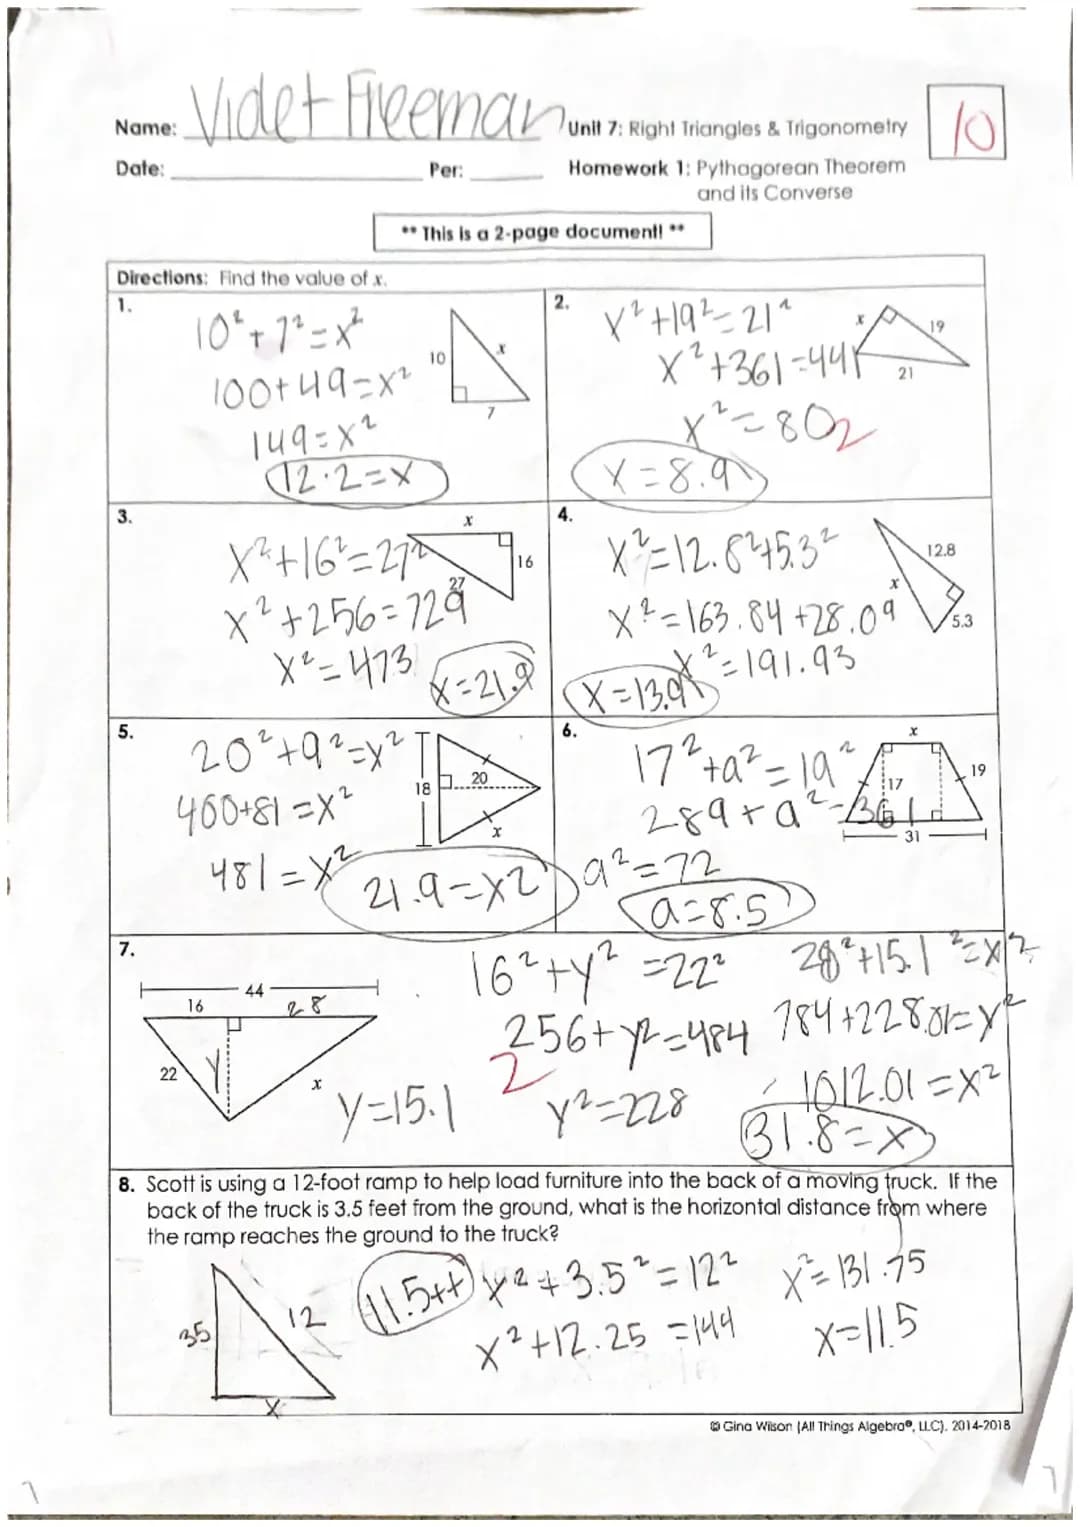 Name: Violet Freeman
Unit 7: Right Triangles & Trigonometry
10
Date: Per:
Homework 1: Pythagorean Theorem
and its Converse
** This is a 2-page document! **
Directions: Find the value of x.
1.
10² + 7² = x²
100 + 49 = x²
149 = x²
12.2 = x
10
x
7
2.
x² + 19² = 21²
x² + 361 = 441
x² = 80
2
x = 8.9
x
19
21
3.
x² + 16² = 27²
x² + 256 = 729
x² = 473
x = 21.9
x
16
27
4.
x² = 12.8² + 5.3²
x² = 163.84 + 28.09
x² = 191.93
x = 13.9
12.8
x
5.3
5.
20² + 9² = x²
400 + 81 = x²
481 = x²
21.9 = x2
18
20
x
6.
17² + a² = 19²
289 + a² = 361
a² = 72
a = 8.5
x
17
19
31
7.
44
16
28
22
y
x
y = 15.1
16² + y² = 22²
256 + y² = 484
2
y² = 228
28² + 15.1² = x²
784 + 228.01 = x²
1012.01 = x²
31.8 = x
8. Scott is using a 12-foot ramp to help load furniture into the back of a moving truck. If the
back of the truck is 3.5 feet from the ground, what is the horizontal distance from where
the ramp reaches the ground to the truck?
35
12
x
11.5 ft
x² + 3.5² = 12²
x² + 12.25 = 144
x² = 131.75
x = 11.5
© Gina Wilson (All Things Algebra®, LLC), 2014-2018